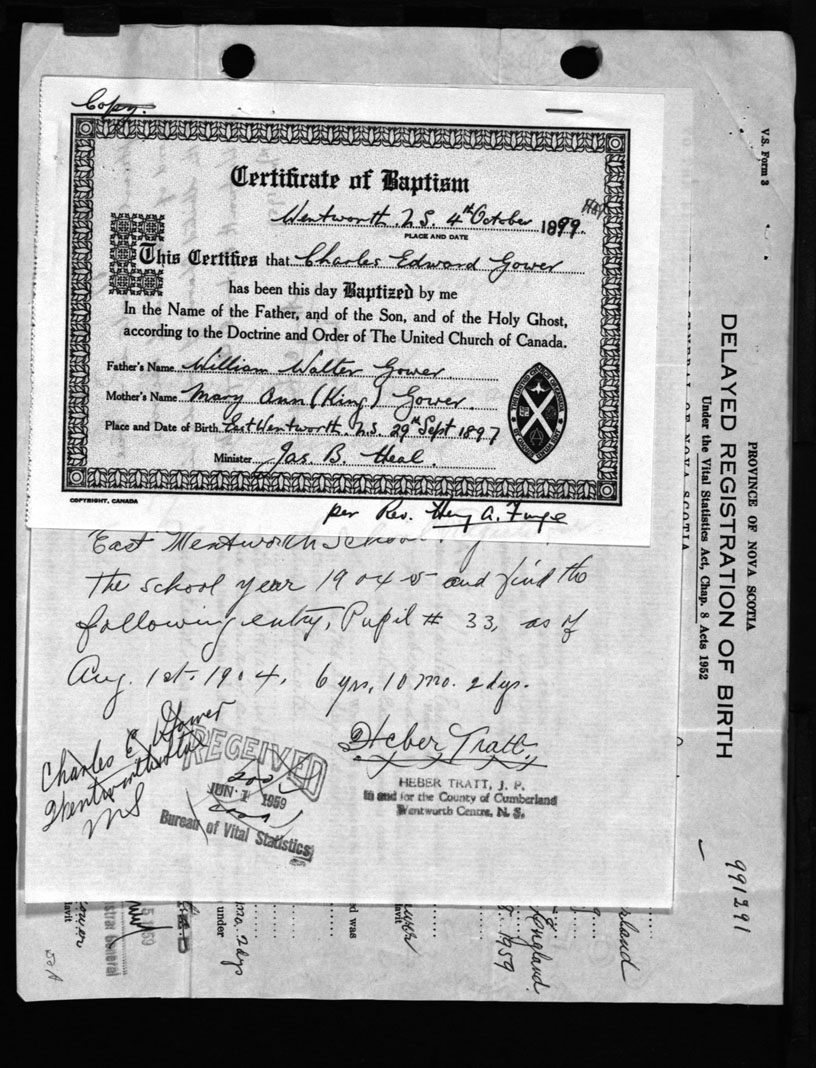 Copy.
Certificate of Baptism
Wentworth N.S. 4th October 1899.
PLACE AND DATE
This Certifies that Charles Edward Gower
has been this day Baptized by me
In the Name of the Father, and of the Son, and of the Holy Ghost,
according to the Doctrine and Order of The United Church of Canada.
Father's Name William Walter Gower
Mother's Name Mary Ann (King) Gower
Place and Date of Birth East Wentworth. N.S. 29th Sept 1897
Minister Jas. B. Heal.
COPYRIGHT, CANADA
per Rev.
East Wentworth School
the school year 1904-5 and find the
following entry, Pupil # 33, as of
Aug. 1st. 1904, 6 yrs, 10 mo. 2 dys.
Charles E. Gower
Wentworth Sta
NS
RECEIVED
JUN 1 1959
Bureau of Vital Statistics
Heber Tratt.
HEBER TRATT, J. P.
in and for the County of Cumberland
Wentworth Centre, N. S.
V.S. Form 3
PROVINCE OF NOVA SCOTIA
DELAYED REGISTRATION OF BIRTH
Under the Vital Statistics Act, Chap. 8 Acts 1952
GENERAL OF NOVA SCOTIA
991291
England
1959
d was
under
mo. 2 dys